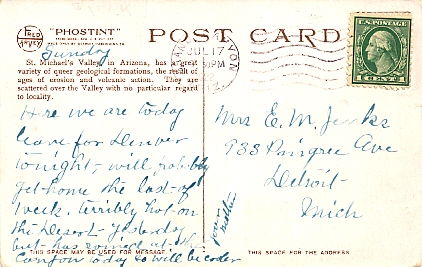 FRED HARVEY
"PHOSTINT"
POST CARD
Sunday
St. Michael's Valley in Arizona, has a great
variety of queer geological formations, the result of
ages of erosion and volcanic action. They are
scattered over the Valley with no particular regard
to locality.
JUL 17
PM
U.S. POSTAGE
1 CENT 1
Here we are today
leave for Denver
tonight, will probably
get home the last of
week. terribly hot on
the Desert Yesterday
but has rained at the
Canyon today so will be cooler
your
Mother
Mrs E. M. Jenks
933 Pingree Ave
Detroit
Mich
THIS SPACE MAY BE USED FOR MESSAGE
THIS SPACE FOR THE ADDRESS